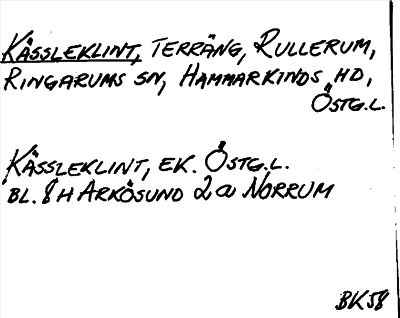 KÄSSLEKLINT, TERRÄNG, RULLERUM,
RINGARUMS SN, HAMMARKINDS HD,
ÖSTG.L.
KÄSSLEKLINT, EK. ÖSTG.L.
BL. 8 H ARKÖSUND 2a NORRUM
BK58